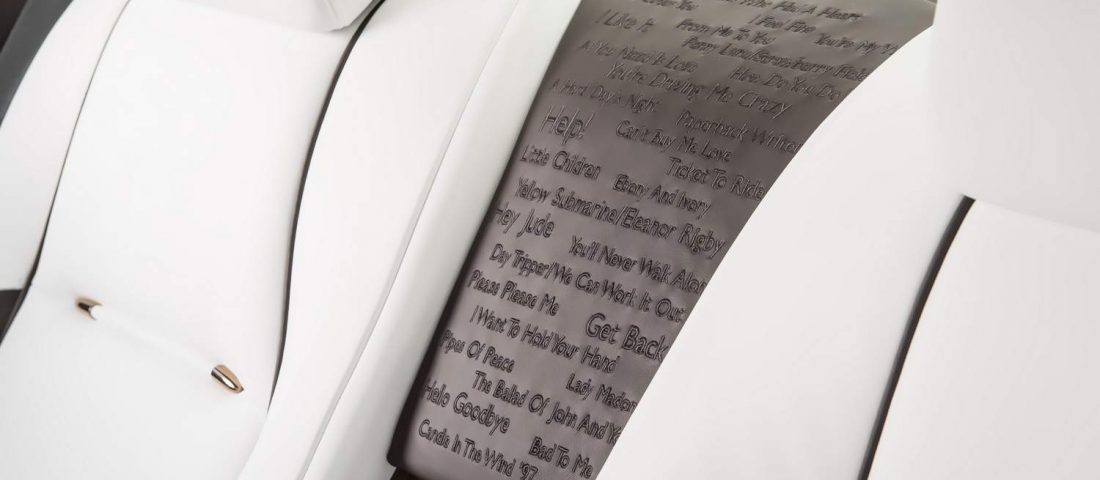 Who Had A Heart
You I Feel Fine You're My
I Like It From Me To You
Penny Lane/Strawberry Fields
All You Need Is Love How Do You Do
You're Driving Me Crazy
A Hard Day's Night Paperback Writer
Help! Can't Buy Me Love
Little Children Ticket To Ride
Ebony And Ivory
Yellow Submarine/Eleanor Rigby
Hey Jude You'll Never Walk Alon
Day Tripper/We Can Work It Out
Please Please Me Get Back
I Want To Hold Your Hand
Pipes Of Peace Lady Madon
The Ballad Of John And Yo
Hello Goodbye Bad To Me
Candle In The Wind '97